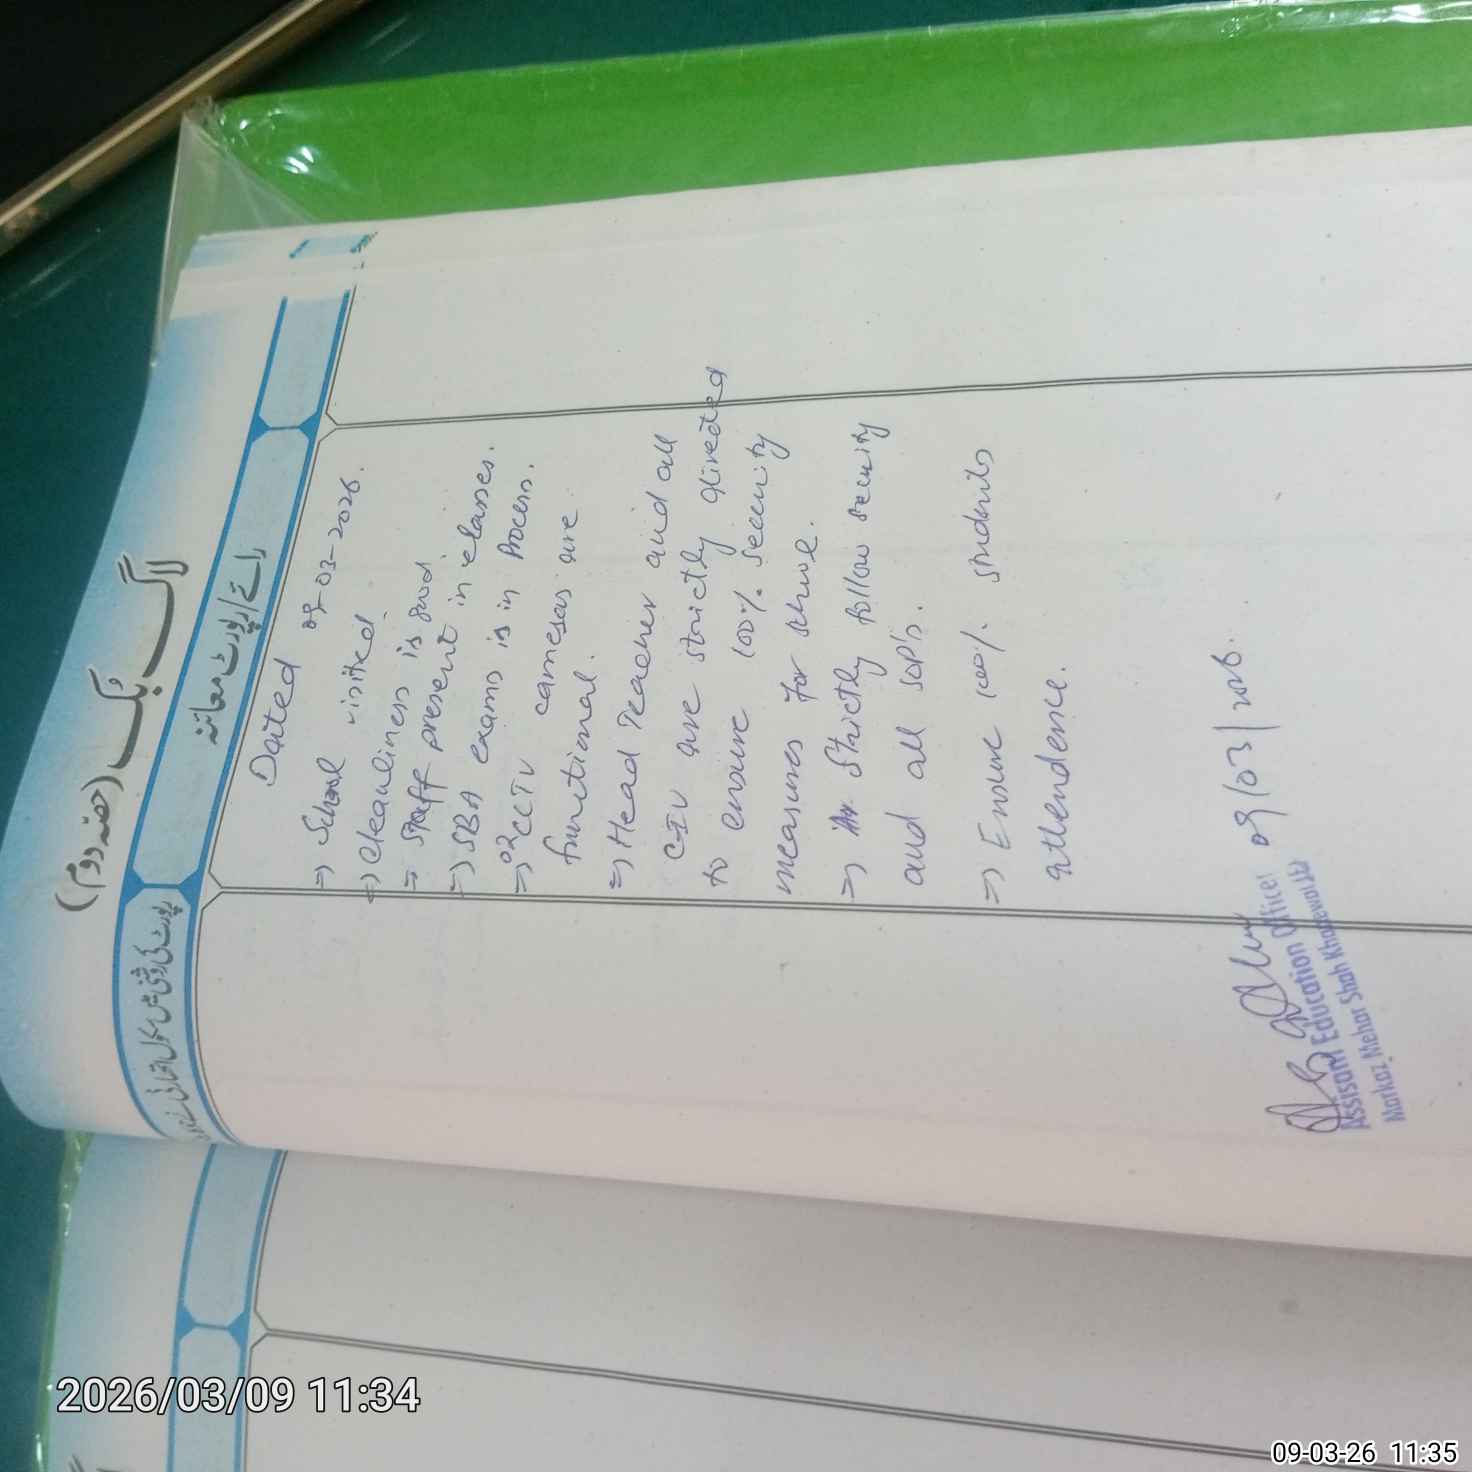 لاگ بک (حصہ دوم)
رائے/رپورٹ معائنہ
رپورٹ کی روشنی میں سکول انتظامیہ نے
Dated 09-03-2026.
=> School visited
=> cleanliness is good
=> Staff present in classes.
=> SBA exams is in Process.
=> 02 CCTV cameras are
functional.
=> Head Teacher and all
C-IV are strictly directed
to ensure 100% security
measures for school.
=> Strictly follow security
and all SOP's.
=> Ensure 100% students
attendence.
09/03/2026.
Assisant Education Officer
Markaz Mehar Shah Khanewal
2026/03/09 11:34
09-03-26 11:35